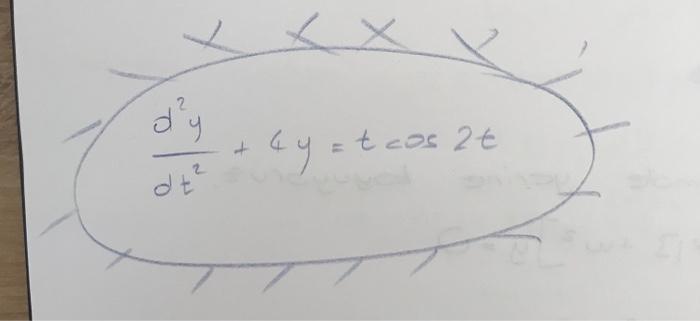 d²y/dt² + 4y = t cos 2t